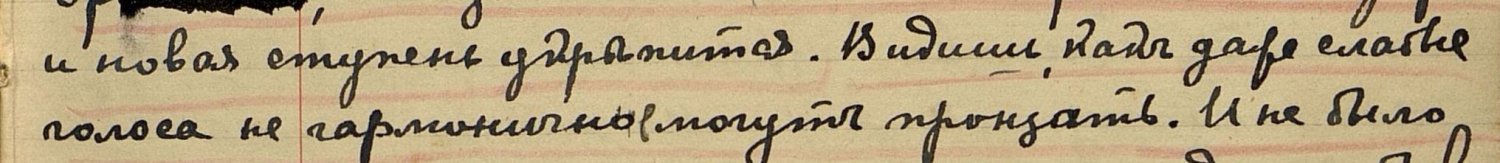 и новая ступень укрѣпится. Видишь, какъ даже слабые
голоса не гармонично могутъ пронзать. И не было